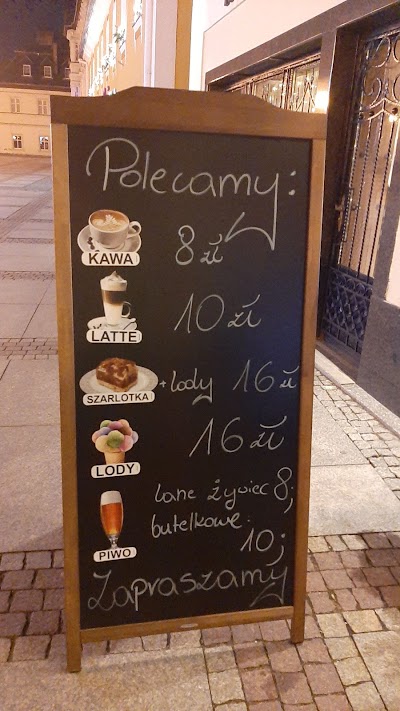 Polecamy:
KAWA 8 zł
LATTE 10 zł
SZARLOTKA + lody 16 zł
LODY 16 zł
lane żywiec 8;
butelkowe:
PIWO 10;
Zapraszamy